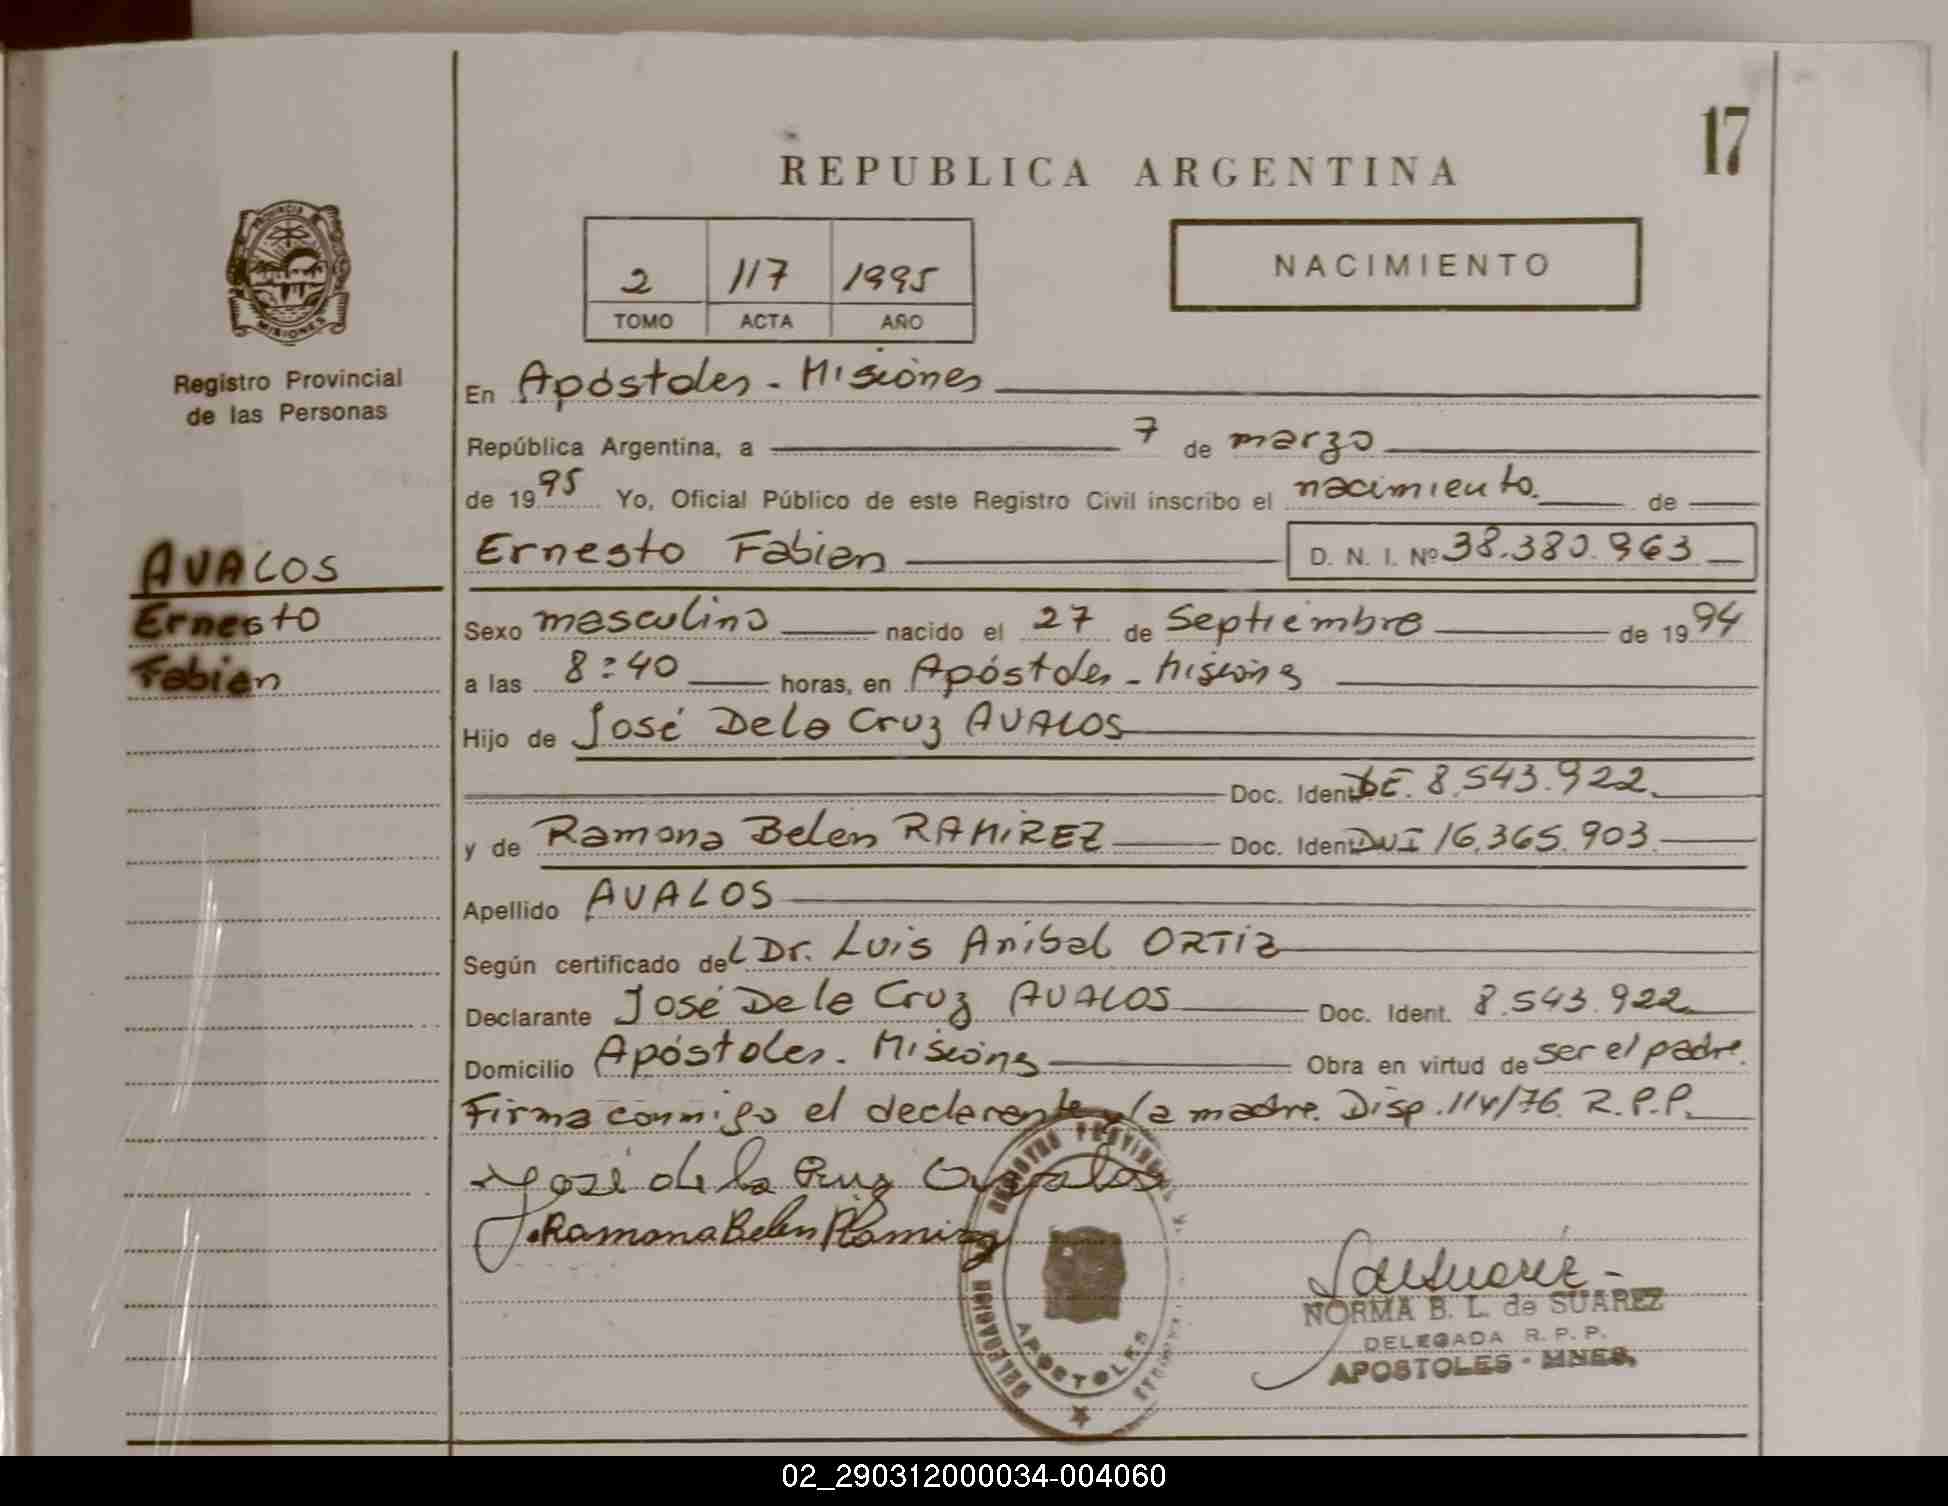 17
REPUBLICA ARGENTINA
PROVINCIA
MISIONES
Registro Provincial
de las Personas
2 117 1995
TOMO ACTA AÑO
NACIMIENTO
En Apóstoles - Misiones
República Argentina, a 7 de marzo
de 1995 Yo, Oficial Público de este Registro Civil inscribo el nacimiento. de
AVALOS
Ernesto
Fabian
Ernesto Fabian D. N. I. Nº 38.380.963
Sexo masculino nacido el 27 de Septiembre de 1994
a las 8:40 horas, en Apóstoles - Misiones
Hijo de José De la Cruz AVALOS
Doc. Ident. DE. 8.543.922.
y de Ramona Belen RAMIREZ Doc. Ident. DNI 16.365.903
Apellido AVALOS
Según certificado del Dr. Luis Anibal ORTIZ
Declarante José De la Cruz AVALOS Doc. Ident. 8.543.922
Domicilio Apóstoles - Misiones Obra en virtud de ser el padre.
Firma conmigo el declarante y la madre. Disp. 114/76. R.P.P.
José de la Cruz Avalos
Ramona Belen Ramirez
APOSTOLES
NORMA B. L. de SUAREZ
DELEGADA R. P. P.
APOSTOLES - MNES.
02_290312000034-004060